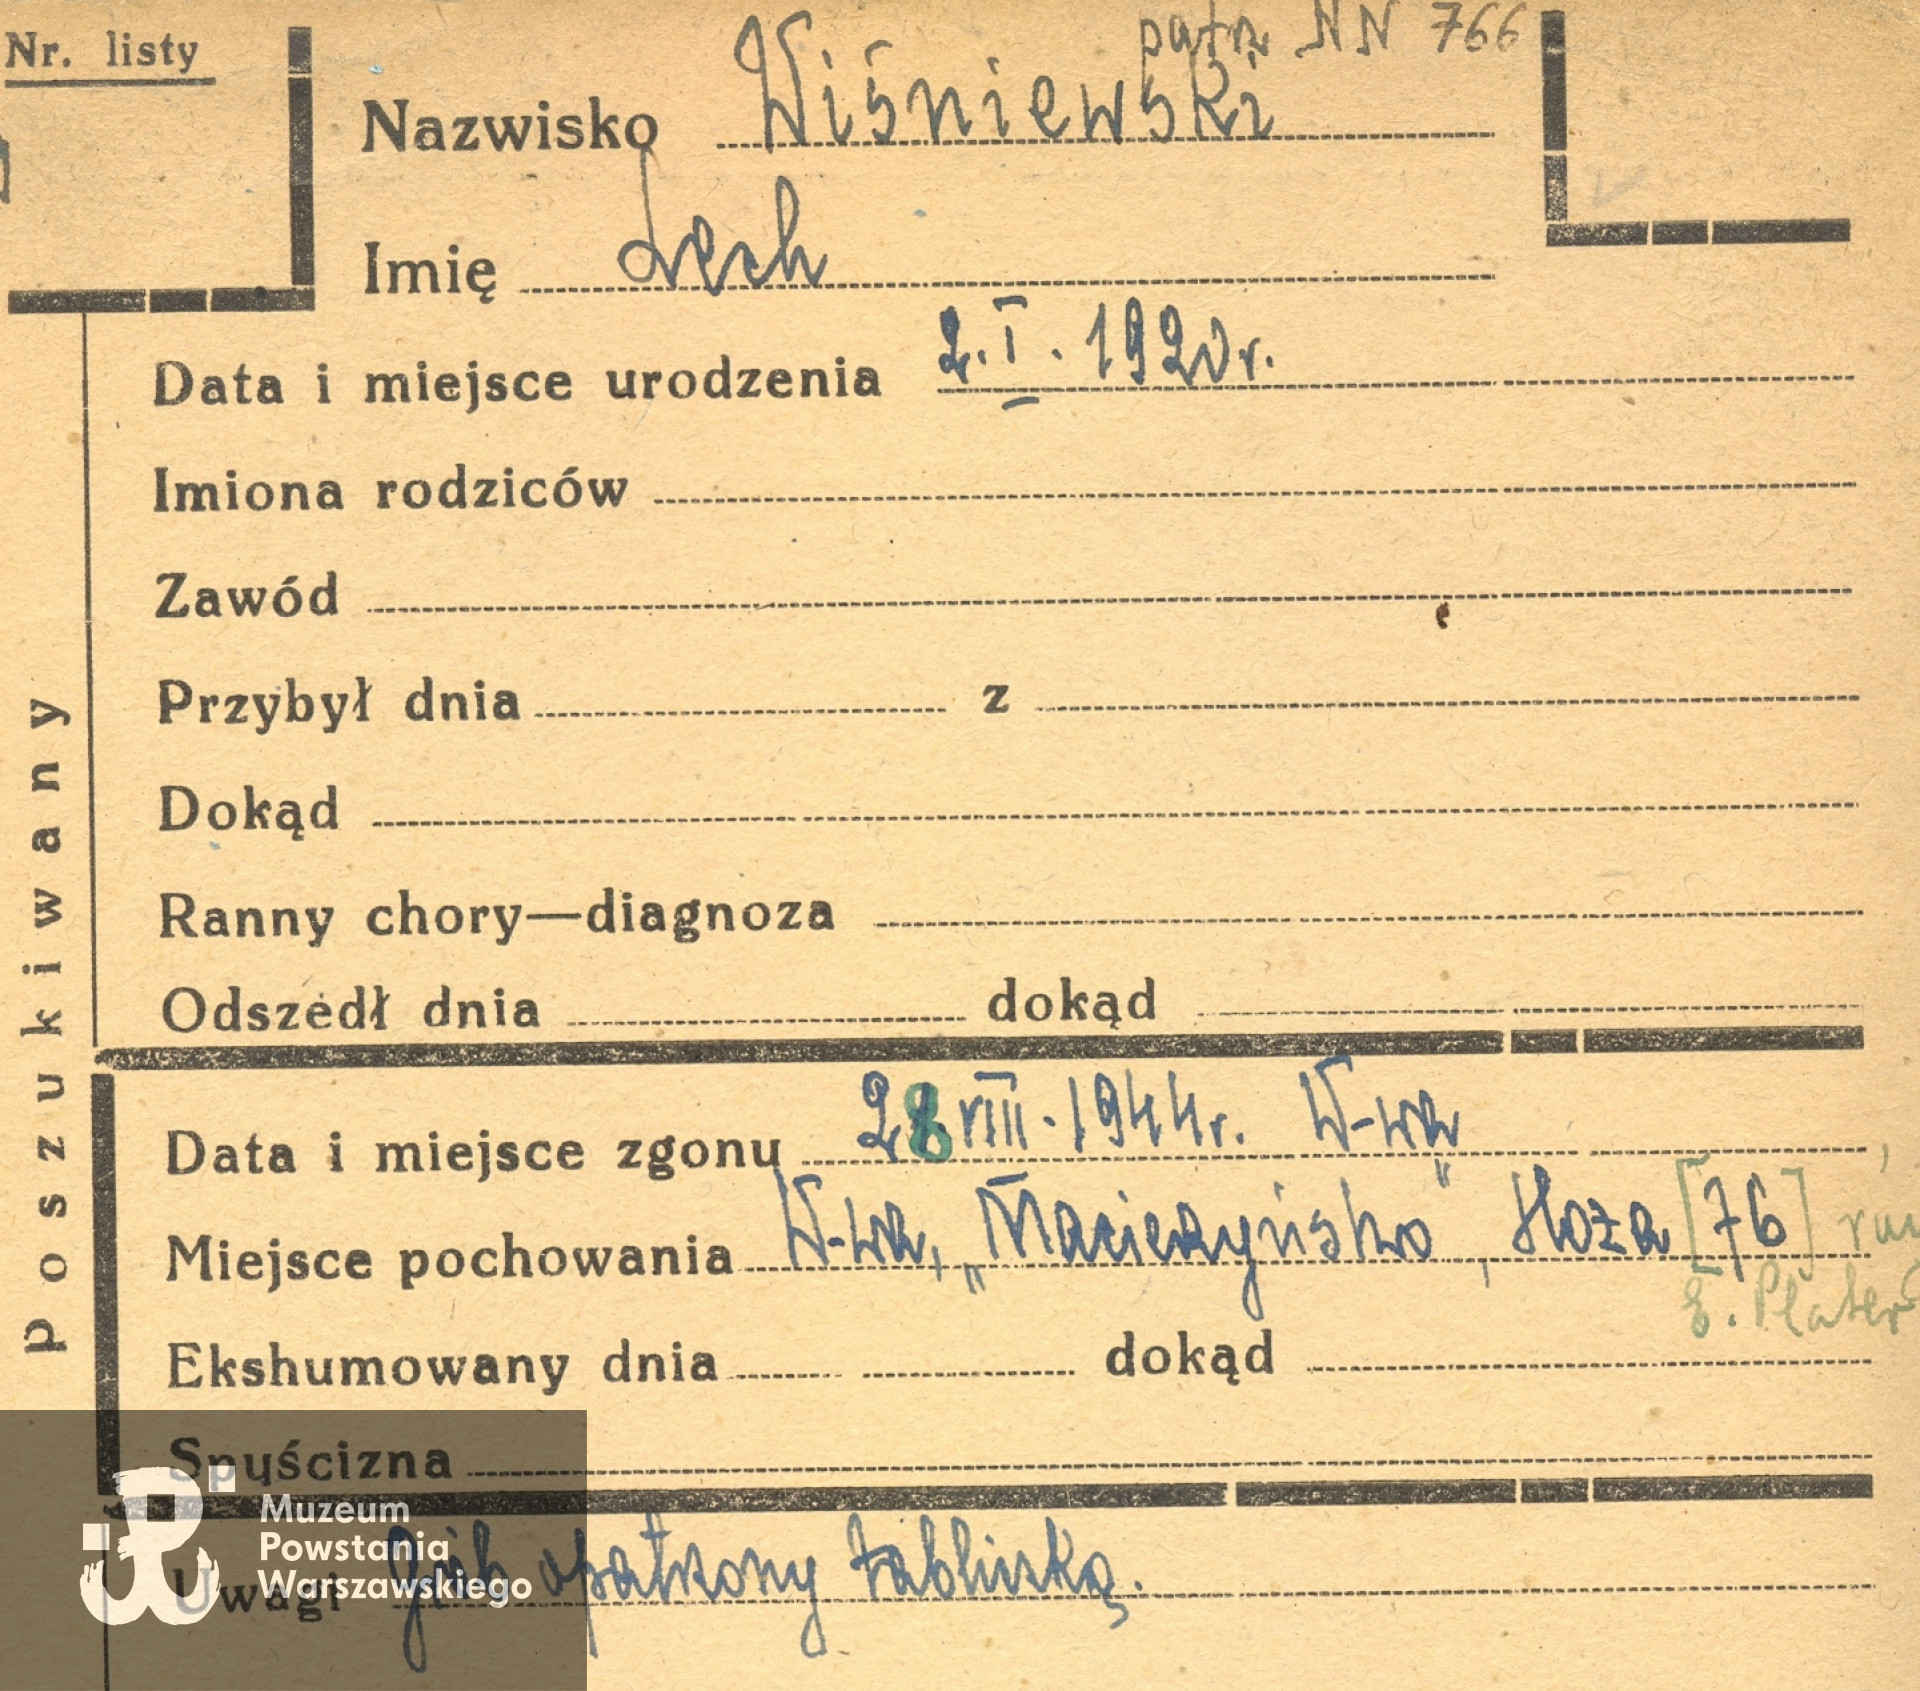 patrz NN 766
Nr. listy
Nazwisko Wiśniewski
Imię Lech
Data i miejsce urodzenia 2.I.1920r.
Imiona rodziców
Zawód
Przybył dnia z
Dokąd
Ranny chory—diagnoza
Odszedł dnia dokąd
Poszukiwany
Data i miejsce zgonu 28 VIII.1944r. W-wa
Miejsce pochowania W-wa, „Macierzyńska", Hoża [76]
E. Plater
Ekshumowany dnia dokąd
Spuścizna
Uwagi grób opatrzony tabliczką.
Muzeum
Powstania
Warszawskiego